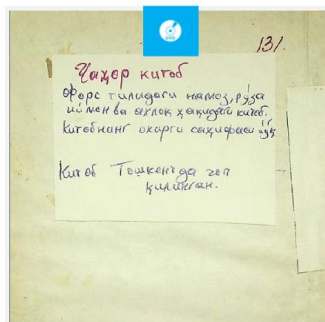 131.
Чаҳор китоб
Форс тилидаги намоз, рўза
иймон ва ахлоқ ҳақидаги китоб.
Китобнинг охирги саҳифаси йўқ
Китоб Тошкентда чоп
қилинган.